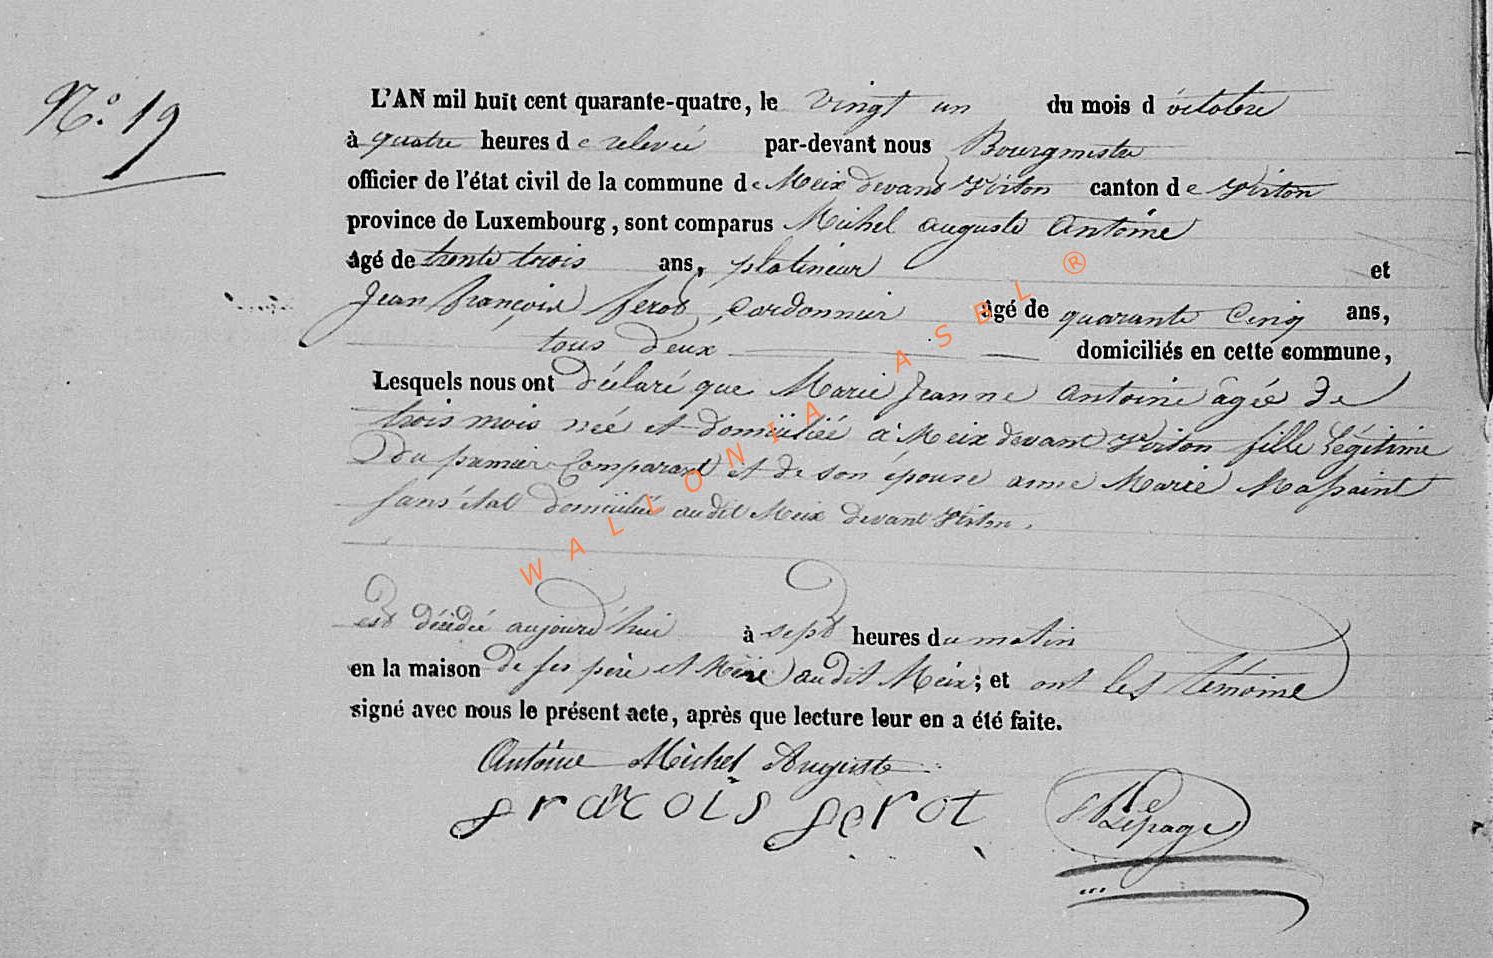 N.º 19
L'AN mil huit cent quarante-quatre, le vingt un du mois d'octobre
à quatre heures de relevée par-devant nous Bourgmestre
officier de l'état civil de la commune de Meix devant Virton canton de Virton
province de Luxembourg, sont comparus Michel auguste antoine
âgé de trente trois ans, platineur et
Jean françois ferot, Cordonnier âgé de quarante Cinq ans,
tous deux domiciliés en cette commune,
Lesquels nous ont déclaré que Marie Jeanne antoine âgée de
trois mois née et domiciliée à Meix devant Virton fille légitime
du premier Comparant et de son épouse anne Marie Massaint
sans état domiciliée audit Meix devant Virton.
est décédée aujourd'hui à sept heures du matin
en la maison de ses père et Mère audit Meix; et ont les témoins
signé avec nous le présent acte, après que lecture leur en a été faite.
Antoine Michel Auguste
francois ferot
Lepage
WALLONIA ASBL ®